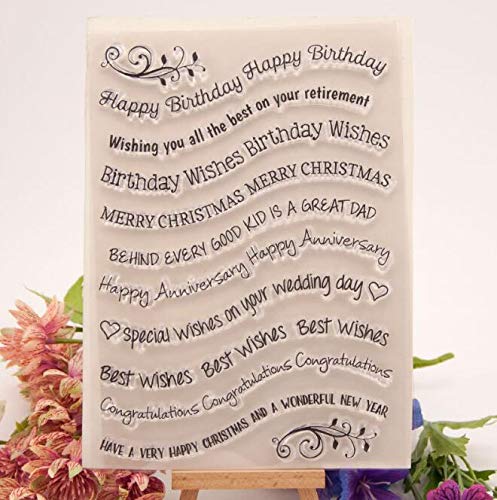 Happy Birthday Happy Birthday
Wishing you all the best on your retirement
Birthday Wishes Birthday Wishes
MERRY CHRISTMAS MERRY CHRISTMAS
BEHIND EVERY GOOD KID IS A GREAT DAD
Happy Anniversary Happy Anniversary
Special Wishes on your wedding day
Best Wishes Best Wishes Best Wishes
Congratulations Congratulations Congratulations
HAVE A VERY HAPPY CHRISTMAS AND A WONDERFUL NEW YEAR